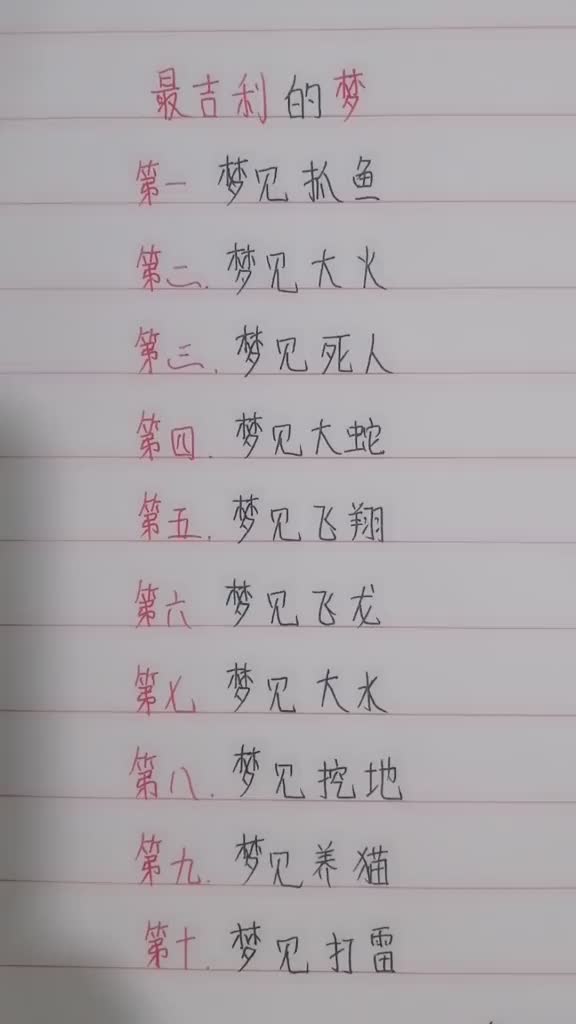 最吉利的梦
第一 梦见抓鱼
第二.梦见大火
第三.梦见死人
第四.梦见大蛇
第五.梦见飞翔
第六 梦见飞龙
第七 梦见大水
第八.梦见挖地
第九.梦见养猫
第十.梦见打雷